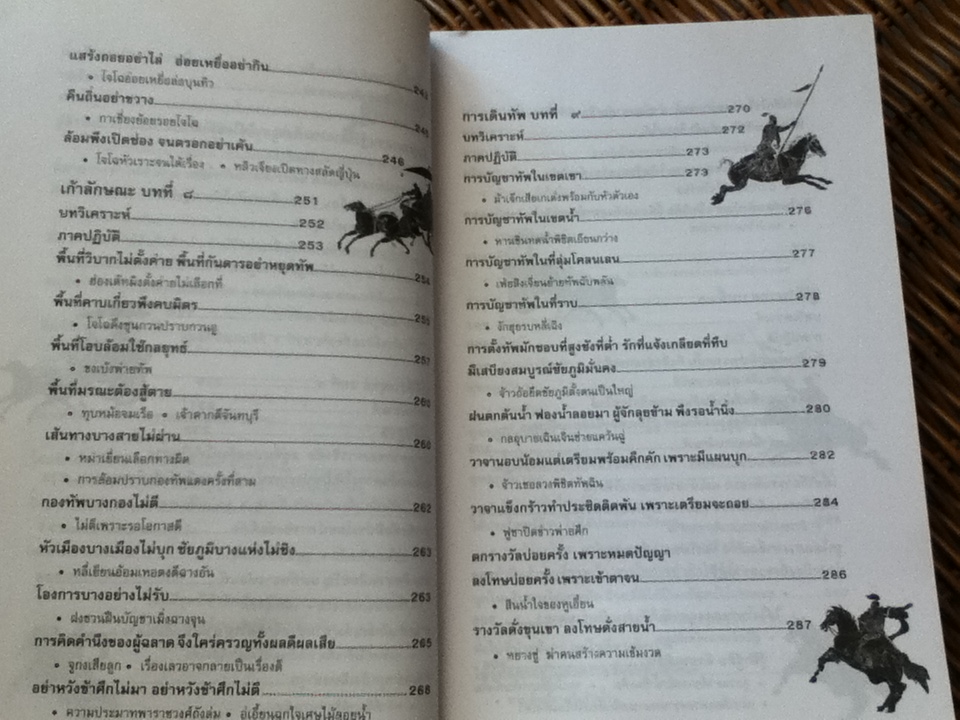 แสร้งถอยอย่าไล่ อ่อยเหยื่ออย่ากิน
• โจโฉอ่อยเหยื่อล่อบุนทิว
คืนถิ่นอย่าขวาง
• กาเซี่ยงย้อยรอยโจโฉ
ล้อมพึงเปิดช่อง จนตรอกอย่าเค้น 246
• โจโฉหัวเราะจนได้เรื่อง • หลิวเจียงเปิดทางสลัดญี่ปุ่น
เก้าลักษณะ บทที่ ๘ 251
บทวิเคราะห์ 252
ภาคปฏิบัติ 253
พื้นที่วิบากไม่ตั้งค่าย พื้นที่กันดารอย่าหยุดทัพ 254
• ฮ่องเต้หมิงตั้งค่ายไม่เลือกที่
พื้นที่คาบเกี่ยวพึงคบมิตร 255
• โจโฉดึงซุนกวนปราบกวนอู
พื้นที่โอบล้อมใช้กลยุทธ์ 257
• ขงเบ้งพ่ายทัพ
พื้นที่มรณะต้องสู้ตาย 260
• ทุบหม้อจมเรือ • เจ้าตากตีจันทบุรี
เส้นทางบางสายไม่ผ่าน 260
• หม่าเยี่ยนเลือกทางผิด
• การล้อมปราบกองทัพแดงครั้งที่สาม
กองทัพบางกองไม่ตี 262
• ไม่ตีเพราะรอโอกาสดี
หัวเมืองบางเมืองไม่บุก ชัยภูมิบางแห่งไม่ชิง 263
• หลี่เยียนอ้อมเหอตงตีฉางอัน
โองการบางอย่างไม่รับ 263
• ฝงชวนฝืนบัญชาเมิ่งฉางจุน
การคิดคำนึงของผู้ฉลาด จึงใคร่ครวญทั้งผลดีผลเสีย 265
• จูกงเสียลูก • เรื่องเลวอาจกลายเป็นเรื่องดี
อย่าหวังข้าศึกไม่มา อย่าหวังข้าศึกไม่ตี 268
• ความประมาทพาราชวงศ์ถังล่ม • อู่เยี้ยนฉุกใจเศษไม้ลอยน้ำ
การเดินทัพ บทที่ ๙ 270
บทวิเคราะห์ 272
ภาคปฏิบัติ 273
การบัญชาทัพในเขตเขา 273
• ม้าเจ๊กเสียเกเต๋งพร้อมกับหัวตัวเอง
การบัญชาทัพในเขตน้ำ 276
• หานซิ่นทดน้ำพิชิตเยียนกว่าง
การบัญชาทัพในที่ลุ่มโคลนเลน 277
• เฟ่ยสิงเจียนย้ายทัพฉับพลัน
การบัญชาทัพในที่ราบ 278
• งักฮุยรบหลี่เฉิง
การตั้งทัพมักชอบที่สูงชังที่ต่ำ รักที่แจ้งเกลียดที่ทึบ
มีเสบียงสมบูรณ์ชัยภูมิมั่นคง 279
• จ้าวอ้อยึดชัยภูมิตั้งตนเป็นใหญ่
ฝนตกต้นน้ำ ฟองน้ำลอยมา ผู้จักลุยข้าม พึงรอน้ำนิ่ง 280
• กลอุบายเฉินเจินช่ายแคว้นฉู่
วาจานอบน้อมแต่เตรียมพร้อมคึกคัก เพราะมีแผนบุก 282
• จ้าวเซอลวงพิชิตทัพฉิน
วาจาแข็งกร้าวทำประชิดติดพัน เพราะเตรียมจะถอย 284
• ฟูซาปิดข่าวพ่ายศึก
ตกรางวัลบ่อยครั้ง เพราะหมดปัญญา
ลงโทษบ่อยครั้ง เพราะเข้าตาจน 286
• สินน้ำใจของหูเอี้ยน
รางวัลดั่งขุนเขา ลงโทษดั่งสายน้ำ 287
• หยางซู่ ฆ่าคนสร้างความเข้มงวด